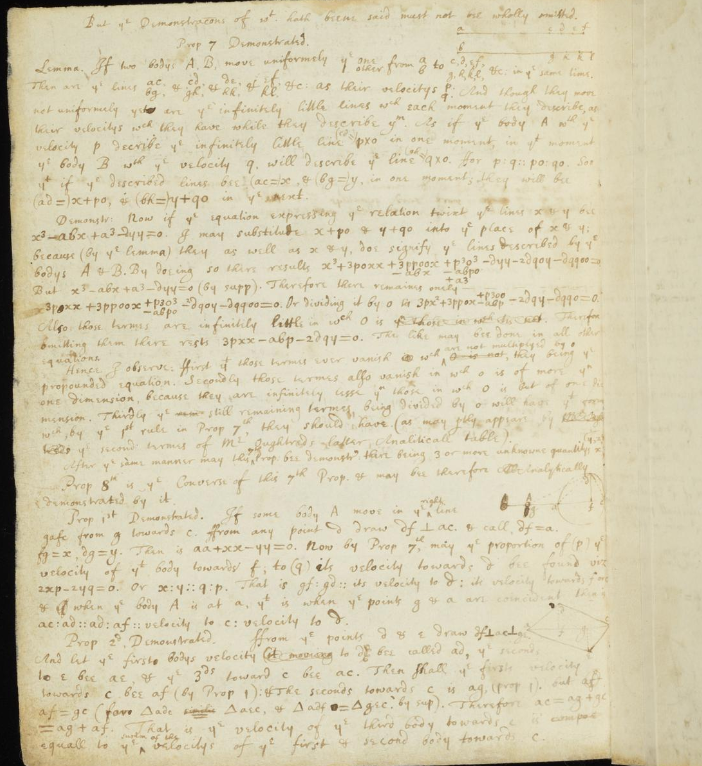 But yᵉ Demonstracons of wᵗ hath beene said must not bee wholly omitted.
Prop 7 Demonstrated.
Lemma. If two bodys A, B, move uniformely yᵉ one/other from a/b to c,d,e,f,/g,h,k,l, &c: in yᵉ same time.
Then are yᵉ lines ac/bg, & cd/gh, & de/hk, & ef/kl, &c: as their velocitys p/q. And though they move
not uniformely yet are yᵉ infinitely little lines wᶜʰ each moment they describe, as
their velocitys wᶜʰ they have while they describe yᵐ. As if yᵉ body A wᵗʰ yᵉ
velocity p describe yᵉ infinitely little line p×o in one moment, in yᵗ moment
yᵉ body B wᵗʰ yᵉ velocity q will describe yᵉ line q×o. For p:q::po:qo. Soe
yᵗ if yᵉ described lines bee (ac=)x, & (bg=)y, in one moment, they will bee
(ad=)x+po, & (bh=)y+qo in yᵉ next.
Demonstr: Now if yᵉ equation expressing yᵉ relation twixt yᵉ lines x & y bee
x³-abx+a³-dyy=0. I may substitute x+po & y+qo into yᵉ place of x & y;
because (by yᵉ lemma) they as well as x & y, doe signify yᵉ lines described by yᵉ
bodys A & B. By doeing so there results x³+3poxx+3ppoox+p³o³-dyy-2dqoy-dqqoo=0
-abx -abpo
+a³
But x³-abx+a³-dyy=0 (by supp). Therefore there remaines onely
3poxx+3ppoox+p³o³-2dqoy-dqqoo=0. Or dividing it by o tis 3px²+3ppox+p³oo-2dqy-dqqo=0.
-abpo -abp
Also those termes are infinitely little in wᶜʰ o is. Therefore
omitting them there rests 3pxx-abp-2dqy=0. The like may bee done in all other
equations.
Hence I observe: First yᵗ those termes ever vanish wᶜʰ are not multiplyed by o, they being yᵉ
propounded equation. Secondly those termes also vanish in wᶜʰ o is of more yⁿ
one dimension, because they are infinitely lesse yⁿ those in wᶜʰ o is but of one di
mension. Thirdly yᵉ still remaining termes being divided by o will have yᵗ forme
wᶜʰ, by yᵉ 1ˢᵗ rule in Prop 7ᵗʰ, they should have (as may ptly appeare by
yᵉ second termes of Mʳ Oughtreds latter Analiticall table).
After yᵉ same manner may this Prop. bee demonstrᵈ there being 3 or more unknowne quantitys x
Prop 8ᵗʰ is yᵉ Converse of this 7ᵗʰ Prop. & may bee therefore Analytically
demonstrated by it.
Prop 1ˢᵗ Demonstrated. If some body A move in yᵉ right line
gafc from g towards c. From any point d draw df⊥ac. & call, df=a.
fg=x, dg=y. Then is aa+xx-yy=0. Now by Prop 7ᵗʰ, may yᵉ proportion of (p) yᵉ
velocity of yᵗ body towards f; to (q) its velocity towards d bee found viz
2xp-2yq=0. Or x:y::q:p. That is gf:gd::its velocity to d: its velocity towards f
& when yᵉ body A is at a, yᵗ is when yᵉ points g & a are coincident then
ac:ad::ad:af::velocity to c: velocity to d.
Prop 2ᵈ, Demonstrated. From yᵉ points d & e draw df⊥ac⊥
And let yᵉ firsts bodys velocity to d bee called ad, yᵉ seconds
to e bee ae, & yᵉ 3ᵈˢ toward c bee ac. Then shall yᵉ firsts velocity
towards c bee af (by Prop 1): & The seconds towards c is ag, (prop 1). but
af=gc (for Δadc = Δaec, & Δadf = Δgec. by sup). Therefore ac=ag+gc
=ag+af. That is yᵉ velocity of yᵉ third body towards c is
equall to yᵉ summ of the velocitys of yᵉ first & second body towards c.